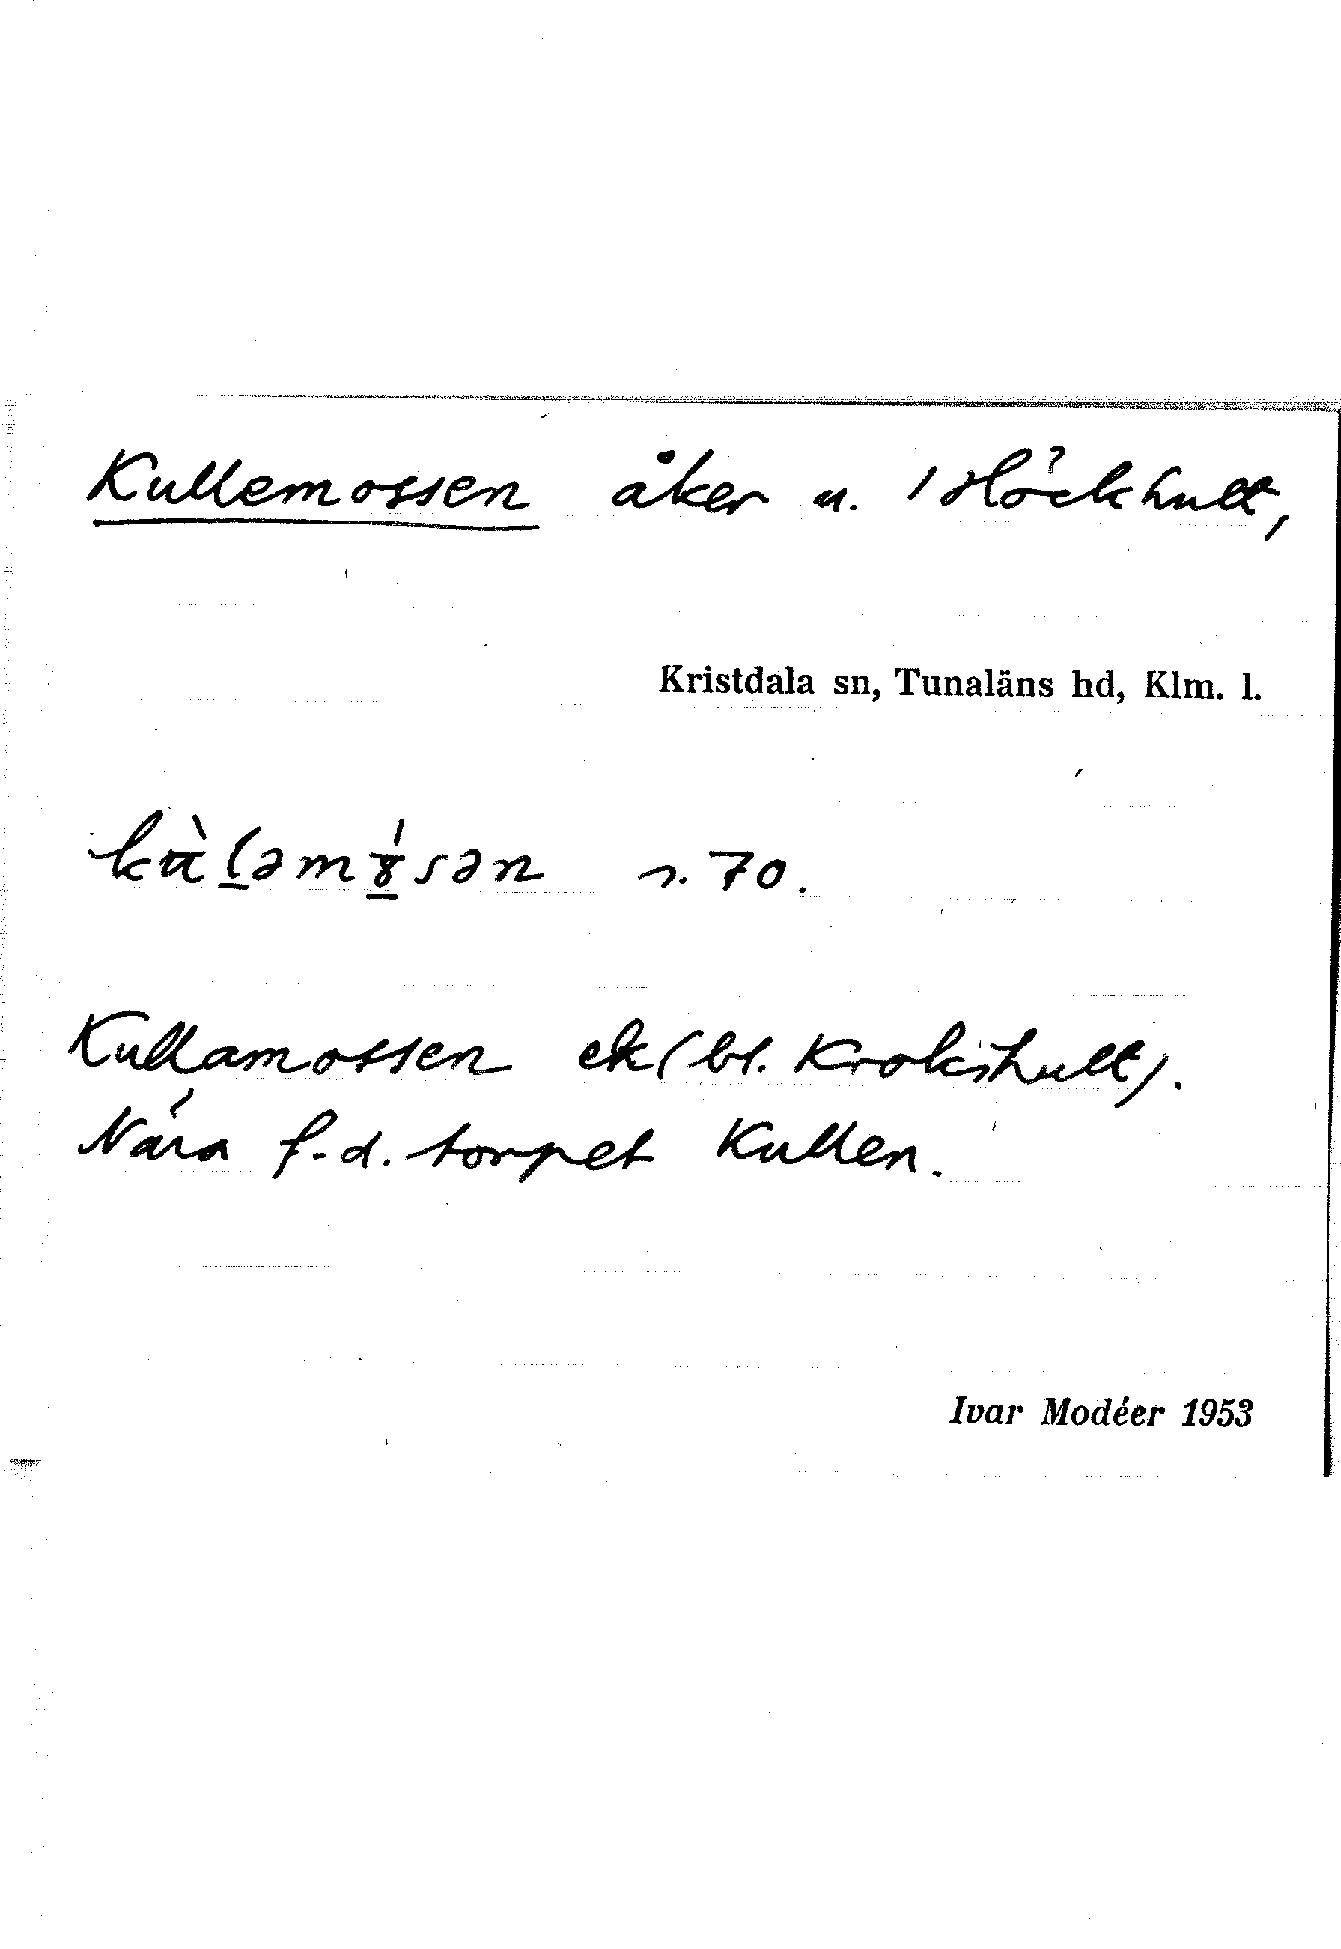 Kullemossen åker u. 1 Höckhult,
Kristdala sn, Tunaläns hd, Klm. l.
n. 70.
Kullamossen ek (bl. Krokshult).
Nära f.d. torpet Kullen.
Ivar Modéer 1953